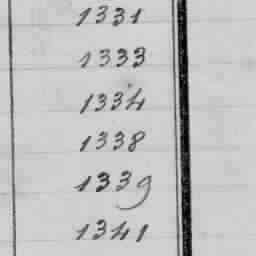 1331
1333
1334
1338
1339
1341